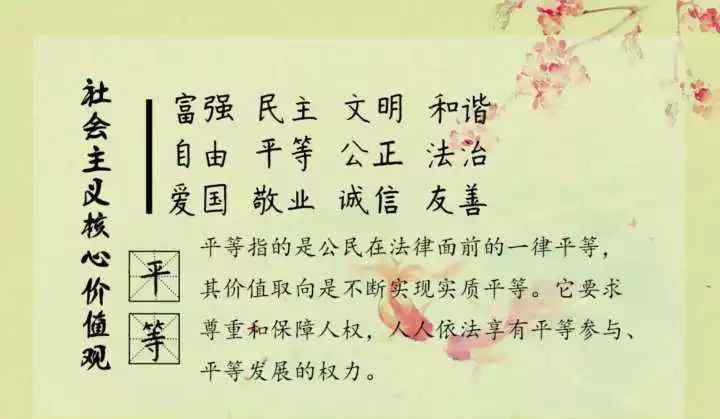 社会主义核心价值观
富强 民主 文明 和谐
自由 平等 公正 法治
爱国 敬业 诚信 友善
平等
平等指的是公民在法律面前的一律平等，
其价值取向是不断实现实质平等。它要求
尊重和保障人权，人人依法享有平等参与、
平等发展的权力。